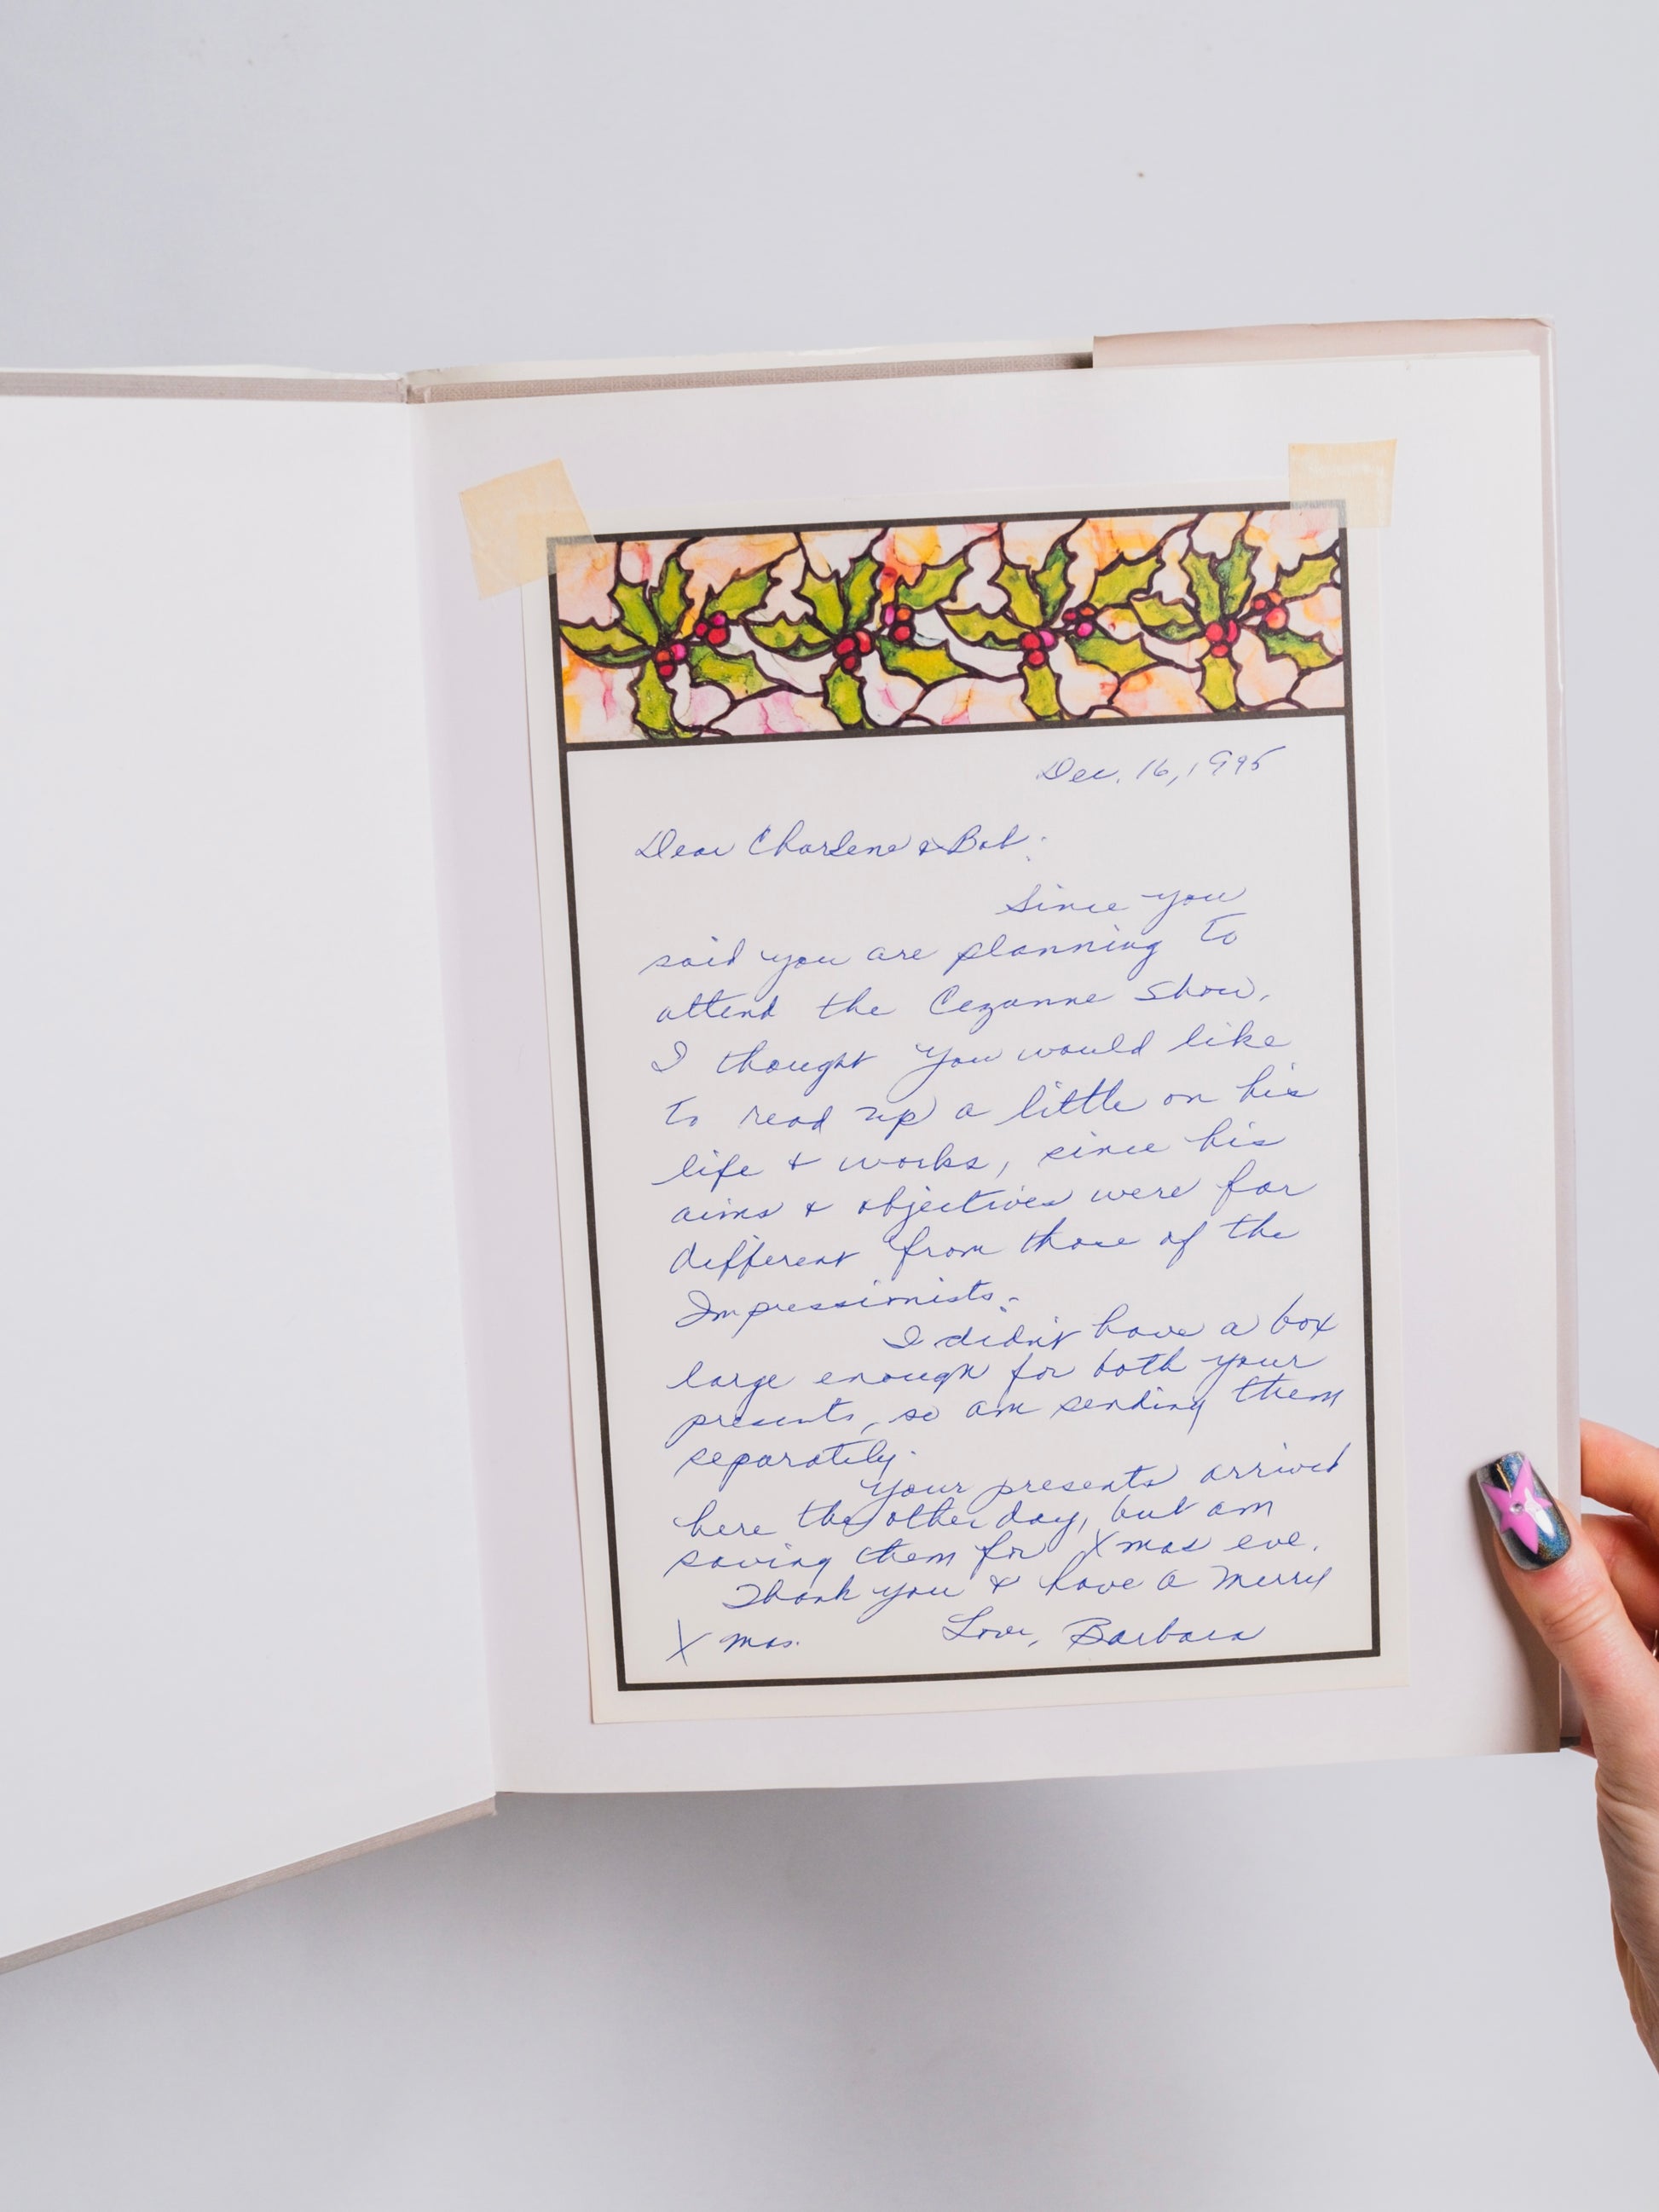 Dec. 16, 1995
Dear Charlene & Bob:
Since you
said you are planning to
attend the Cezanne show,
I thought you would like
to read up a little on his
life & works, since his
aims & objectives were far
different from those of the
Impressionists.
I didn't have a box
large enough for both your
presents, so am sending them
separately.
Your presents arrived
here the other day, but am
saving them for Xmas eve.
Thank you & have a Merry
Xmas.
Love, Barbara